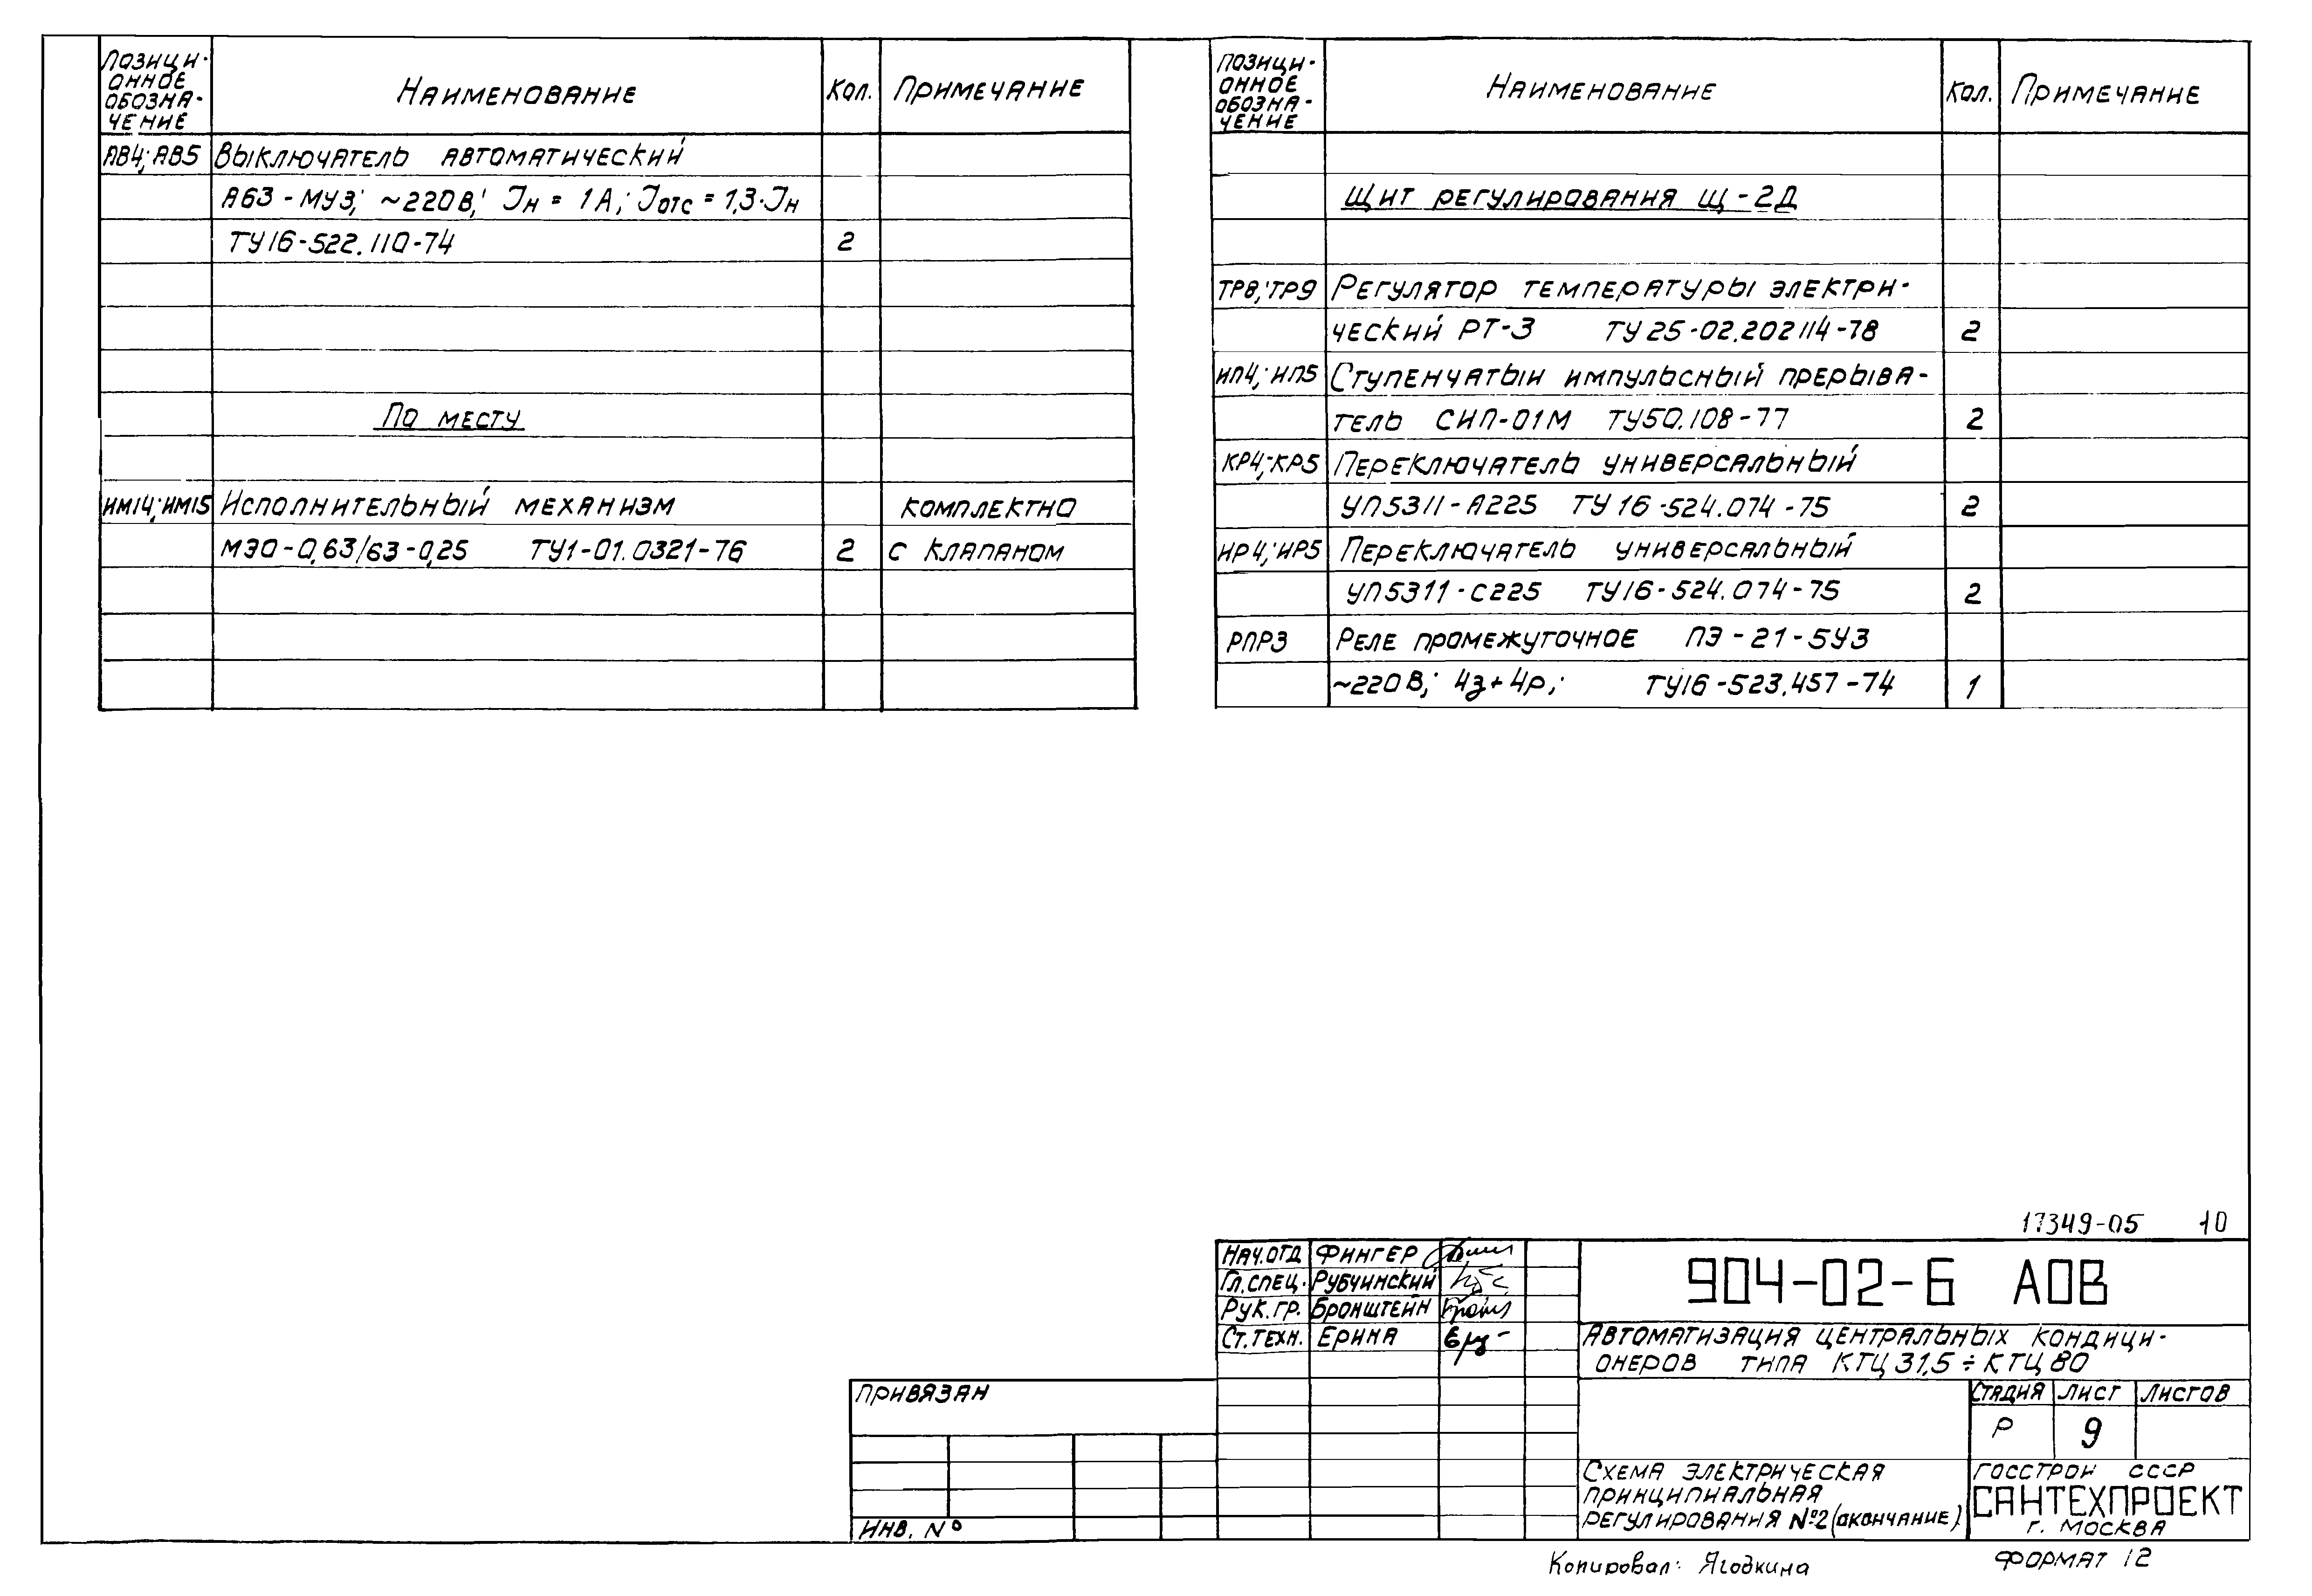 Позици-
онное
обозна-
чение
Наименование
Кол.
Примечание
АВ4; АВ5 Выключатель автоматический
А63-МУ3; ~220В; Iн = 1А; Iотс = 1,3·Iн
ТУ16-522.110-74 2
По месту
ИМ14; ИМ15 Исполнительный механизм комплектно
МЭО-0,63/63-0,25 ТУ1-01.0321-76 2 с клапаном
Позици-
онное
обозна-
чение
Наименование
Кол.
Примечание
Щит регулирования Щ-2Д
ТР8; ТР9 Регулятор температуры электри-
ческий РТ-3 ТУ 25-02.202114-78 2
ИП4; ИП5 Ступенчатый импульсный прерыва-
тель СИП-01М ТУ50.108-77 2
КР4; КР5 Переключатель универсальный
УП5311-А225 ТУ 16-524.074-75 2
ИР4; ИР5 Переключатель универсальный
УП5311-С225 ТУ16-524.074-75 2
РПР3 Реле промежуточное ПЭ-21-5У3
~220В; 4з+4р; ТУ16-523.457-74 1
17349-05 10
Нач.отд Фингер
Гл.спец. Рубчинский
Рук.гр. Бронштейн
Ст.техн. Ерина
904-02-6 АОВ
Автоматизация центральных кондици-
онеров типа КТЦ 31,5÷КТЦ 80
Привязан
Инв. №
Стадия Лист Листов
Р 9
Схема электрическая
принципиальная
регулирования №2 (окончание)
Госстрой СССР
САНТЕХПРОЕКТ
г. Москва
Копировал: Ягодкина
Формат 12